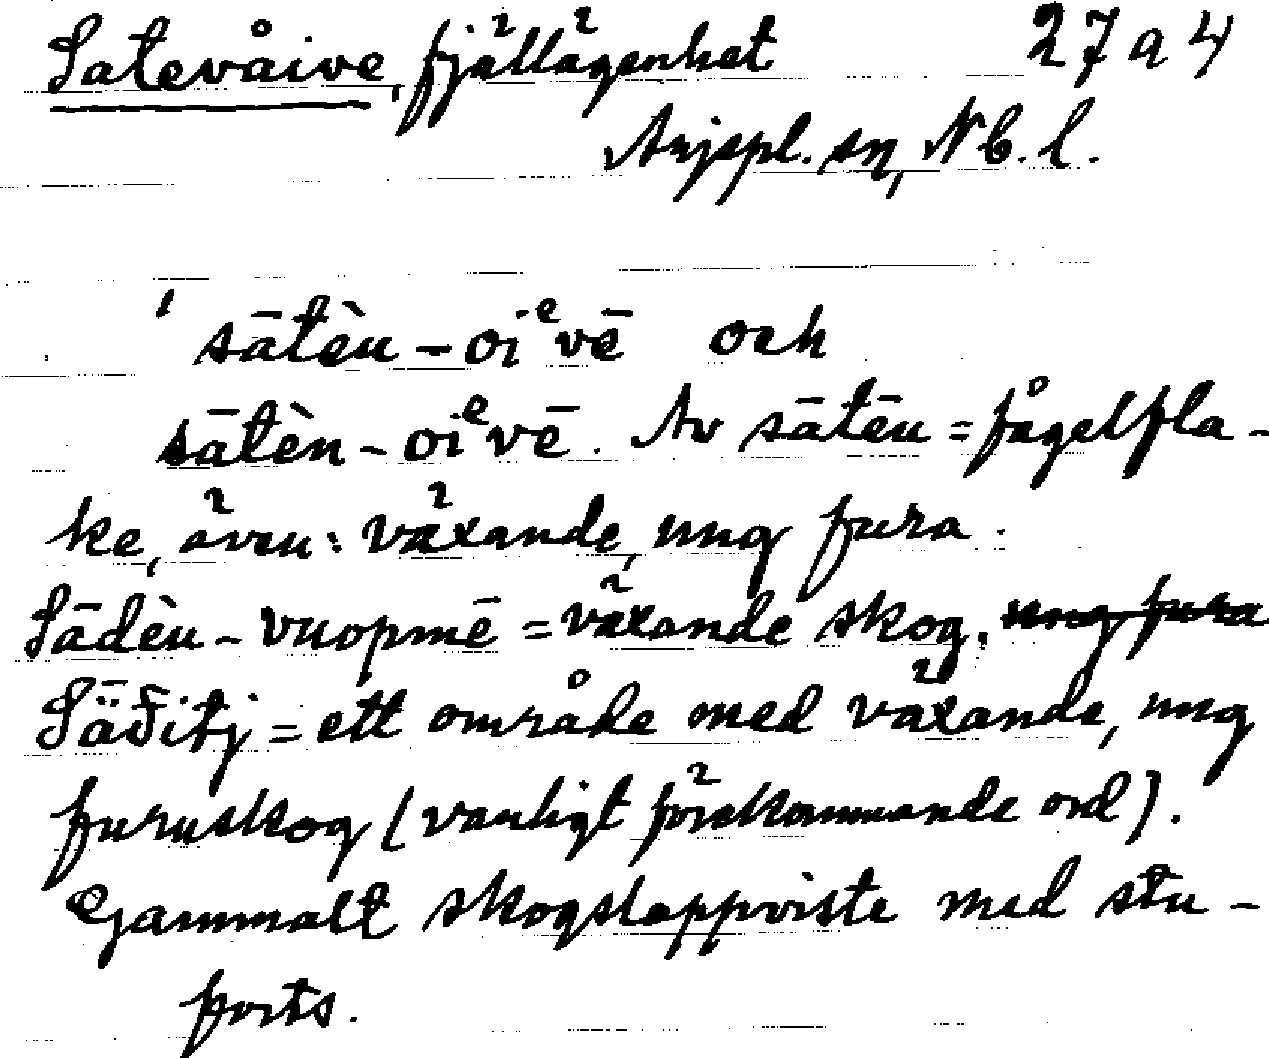 Satevåive, fjällägenhet 27 a 4
Arjepl. sn, Nb. l.
' sātèu - oiᵉvē och
sātèn - oiᵉvē. Av sātēu = fågelfla-
ke, även: växande, ung fura.
Sādèu - vuopmē = växande skog. ung fura
Säđitj = ett område med växande, ung
furuskog (vanligt förekommande ord).
Gammalt skogslappviste med stu-
ports.